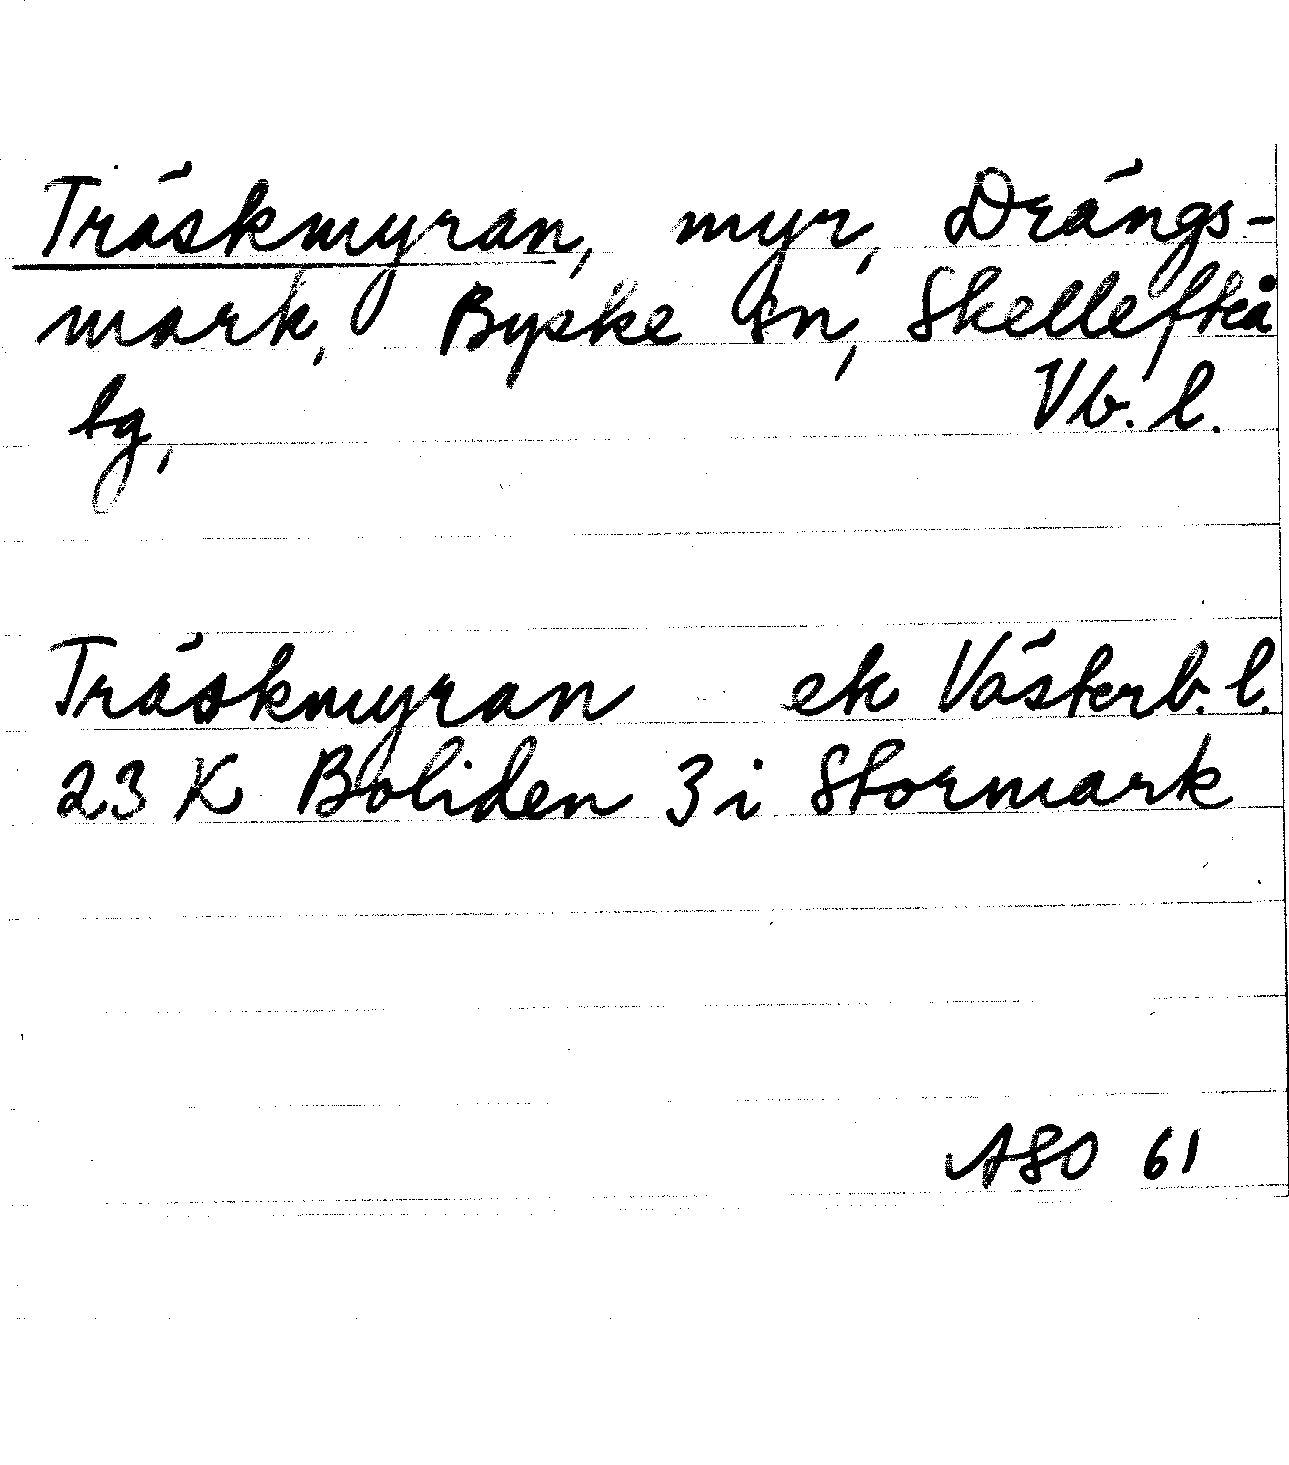 Träskmyran, myr, Drängs-
mark, Byske sn, Skellefteå
tg, Vb. l.
Träskmyran ek Västerb. l.
23 K Boliden 3 i Stormark
ASO 61